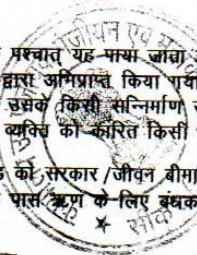 पश्चात् यह पाया जाता
द्वारा अभिप्राप्त किया गया
उसके किसी सन्निर्माण
व्यक्ति को कारित किसी
को सरकार/जीवन बीमा
पास ऋण के लिए बंधक